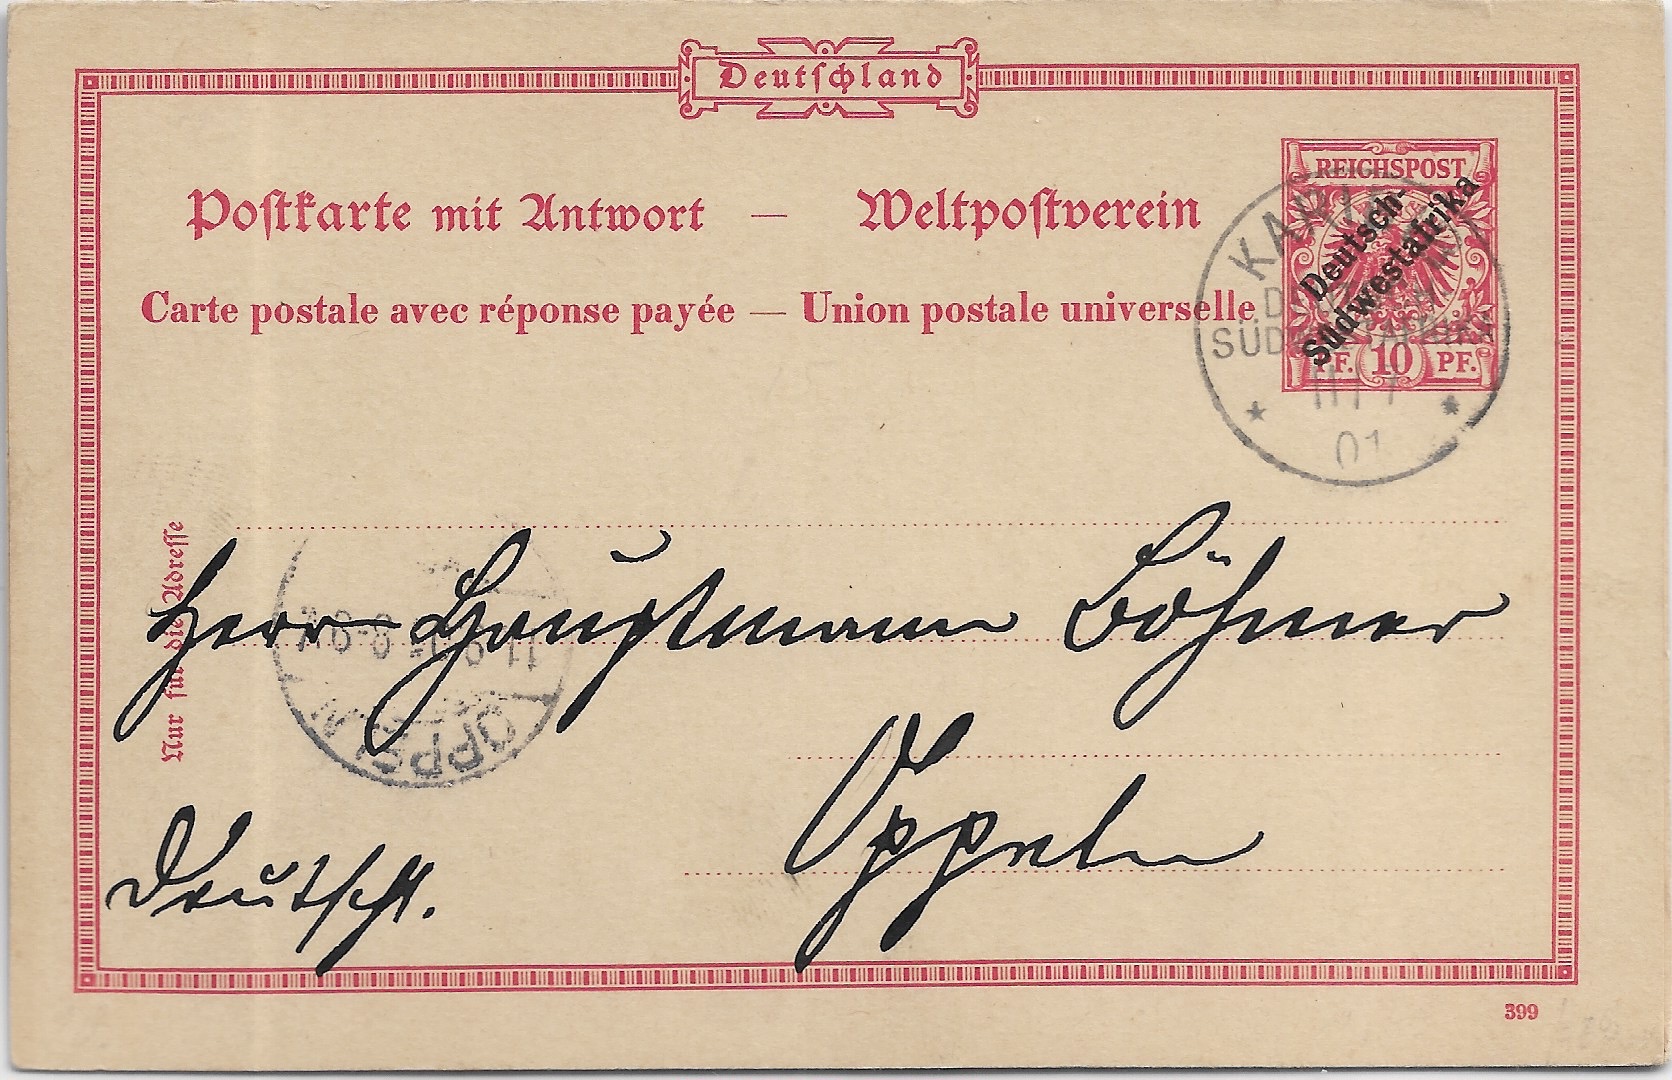 Deutſchland
Poſtkarte mit Antwort — Weltpoſtverein
Carte postale avec réponse payée — Union postale universelle
REICHSPOST
Deutsch-
Südwestafrika
PF. 10 PF.
01
Nur für die Adreſſe
Herr Hauptmann Böhmer
OPPELN
Oppeln
Deutschl.
399